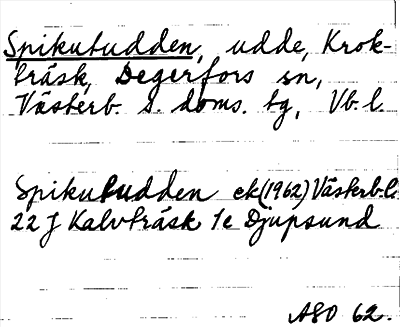 Spikutudden, udde, Krok-
träsk, Degerfors sn,
Västerb. s. doms. tg, Vb. l.
Spikutudden ek (1962) Västerb. l.
22 J Kalvträsk 1e Djupsund
ASO 62.